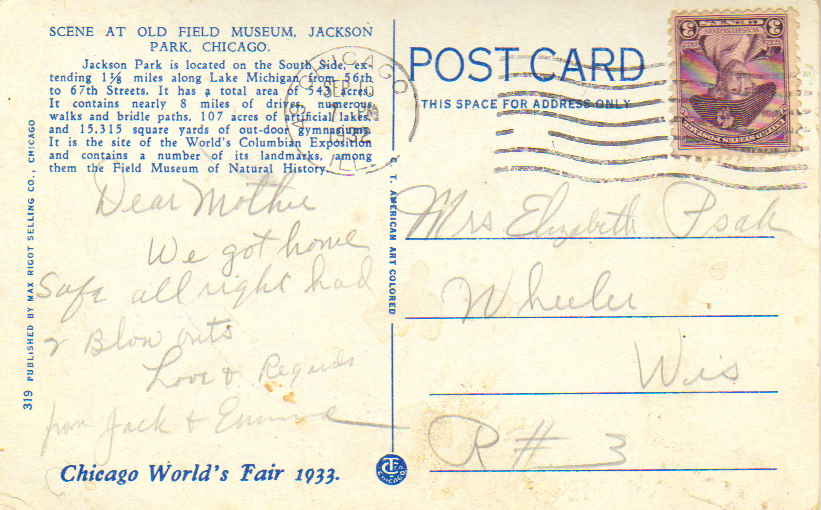 SCENE AT OLD FIELD MUSEUM, JACKSON
PARK, CHICAGO.
Jackson Park is located on the South Side, ex-
tending 1⅛ miles along Lake Michigan from 56th
to 67th Streets. It has a total area of 543 acres.
It contains nearly 8 miles of drives, numerous
walks and bridle paths, 107 acres of artificial lakes,
and 15,315 square yards of out-door gymnasiums.
It is the site of the World's Columbian Exposition
and contains a number of its landmarks, among
them the Field Museum of Natural History.
Dear Mother
We got home
Safe all right had
2 Blow outs
Love & Regards
from Jack & Emma
Chicago World's Fair 1933.
319 PUBLISHED BY MAX RIGOT SELLING CO., CHICAGO
C. T. AMERICAN ART COLORED
CHICAGO
SEP 10
1932
ILL.
POST CARD
THIS SPACE FOR ADDRESS ONLY
3 3
Mrs Elizabeth Psak
Wheeler
Wis
R # 3
CT
CHICAGO